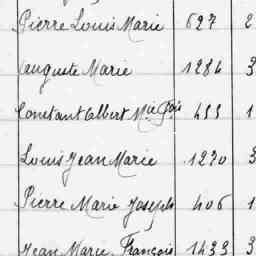 Pierre Louis Marie 627 2
Auguste Marie 1284 3
Constant Albert Mie Fois 455 1
Louis Jean Marie 1230 3
Pierre Marie Joseph 406 1
Jean Marie François 1433 3